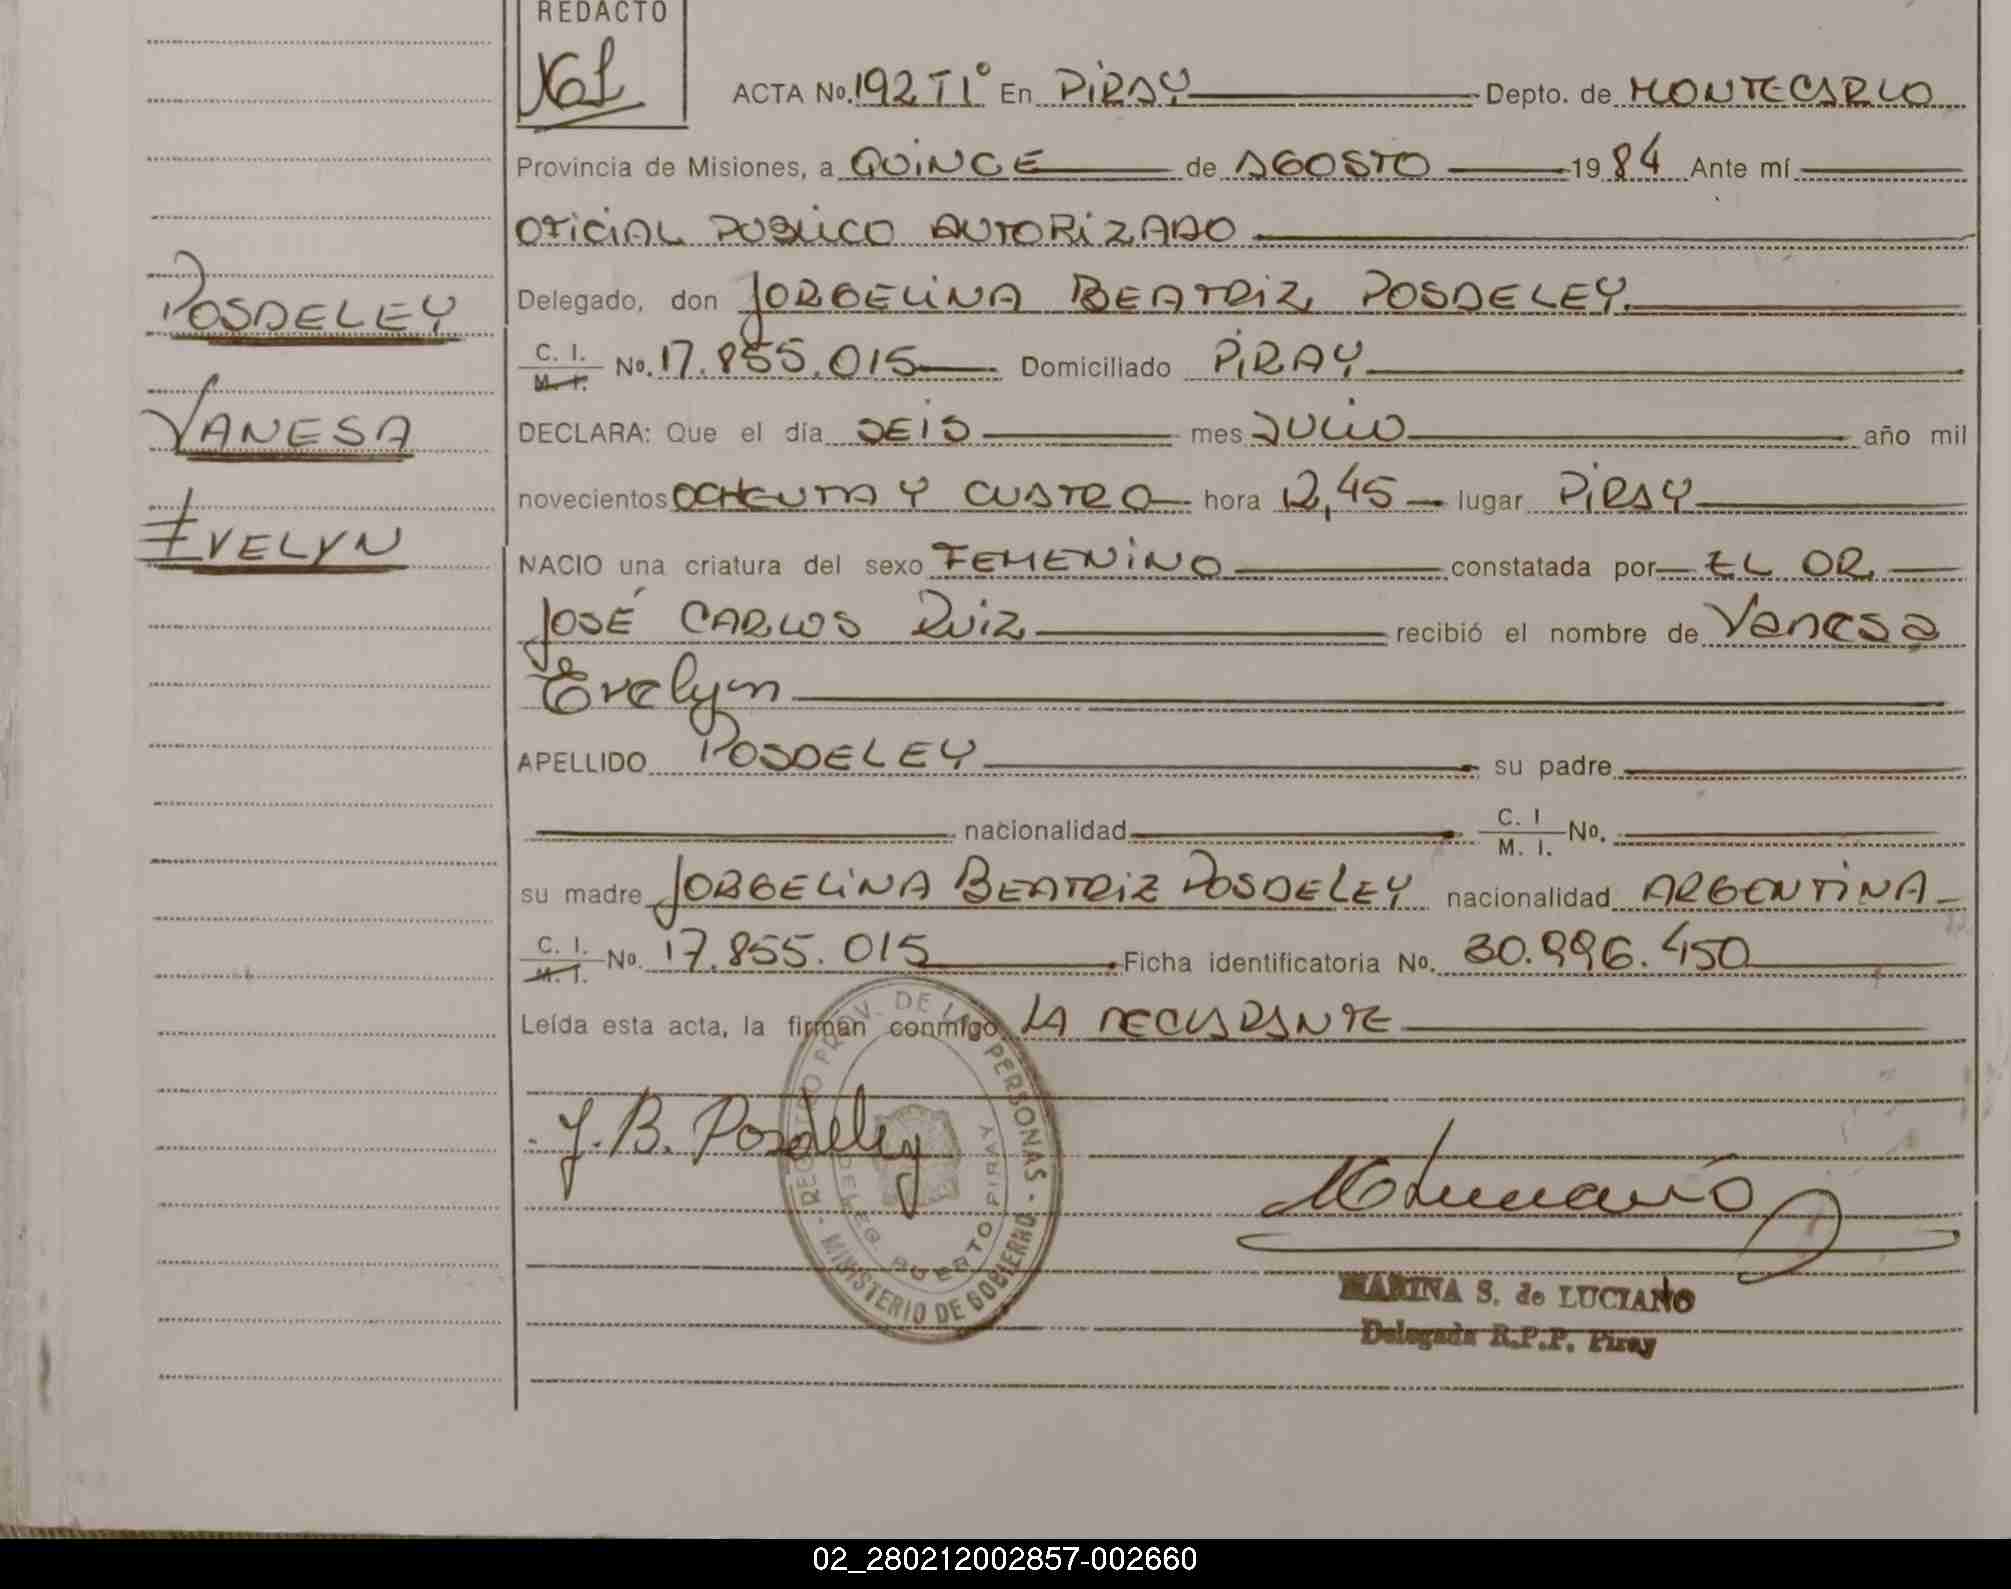 REDACTO
ACTA No. 192 T1° En PIRAY Depto. de MONTECARLO
Provincia de Misiones, a QUINCE de AGOSTO 1984 Ante mí
OFICIAL PUBLICO AUTORIZADO
POSDELEY
Delegado, don JORGELINA BEATRIZ POSDELEY
C. I. M. I. No. 17.855.015 Domiciliado PIRAY
VANESA
DECLARA: Que el día SEIS mes JULIO año mil
novecientos OCHENTA Y CUATRO hora 12,45 lugar PIRAY
EVELYN
NACIO una criatura del sexo FEMENINO constatada por EL DR.
JOSÉ CARLOS RUIZ recibió el nombre de Vanesa
Evelyn
APELLIDO POSDELEY su padre
nacionalidad C. I M. I. No.
su madre JORGELINA BEATRIZ POSDELEY nacionalidad ARGENTINA
C. I. M. I. No. 17.855.015 Ficha identificatoria No. 30.996.450
Leída esta acta, la firman conmigo LA DECLARANTE
J. B. Posdeley
REGISTRO PROV. DE LAS PERSONAS · MINISTERIO DE GOBIERNO ·
DELEG. PUERTO PIRAY
MARINA S. de LUCIANO
Delegada R.P.P. Piray
02_280212002857-002660